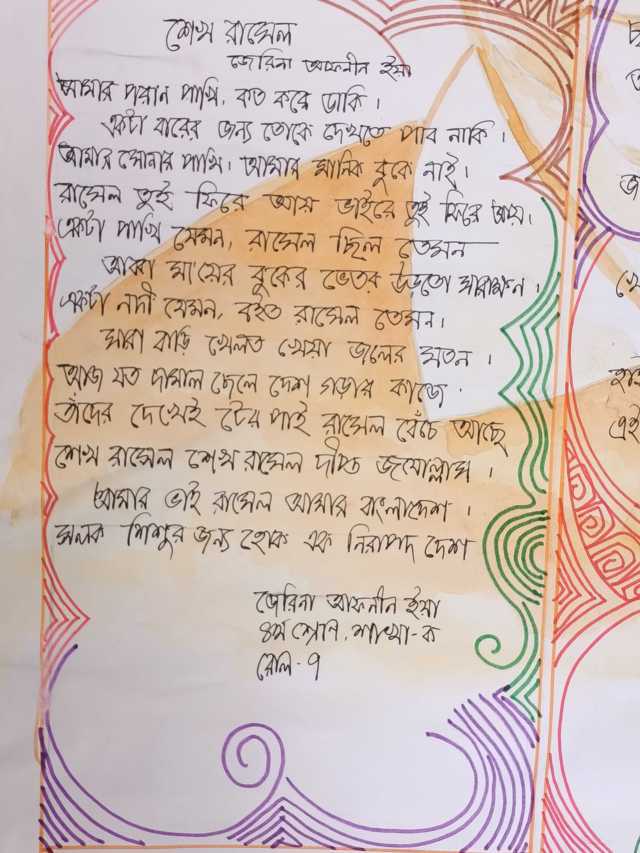 শেখ রাসেল
জেরিনা আফনীন ইয়া
আমার পরান পাখি, কত করে ডাকি।
একটা বারের জন্য তোকে দেখতে পাব নাকি।
আমার সোনার পাখি। আমার মানিক বুকে নাই।
রাসেল তুই ফিরে আয় ভাইরে তুই ফিরে আয়।
একটা পাখি যেমন, রাসেল ছিল তেমন
আব্বা মা'য়ের বুকের ভেতর উড়তো সারাক্ষন।
একটা নদী যেমন, বইত রাসেল তেমন।
সারা বাড়ি খেলত খেয়া জলের মতন।
আজ যত দামাল ছেলে দেশ গড়ার কাজে
তাঁদের দেখেই টের পাই রাসেল বেঁচে আছে
শেখ রাসেল শেখ রাসেল দীপ্ত জয়োল্লাস।
আমার ভাই রাসেল আমার বাংলাদেশ।
সলক শিশুর জন্য হোক এক নিরাপদ দেশ
জেরিনা আফনীন ইয়া
৪র্থ শ্রেণি, শাখা-ক
রোল-৭
এই